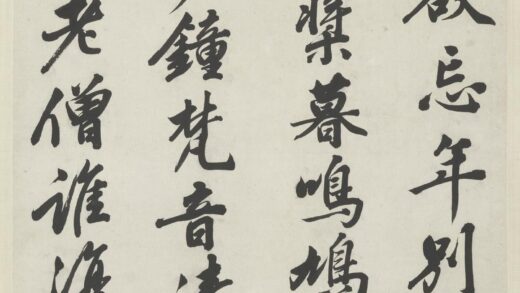 欲忘年別
槳暮鳴鳩
鐘梵音清
老僧誰